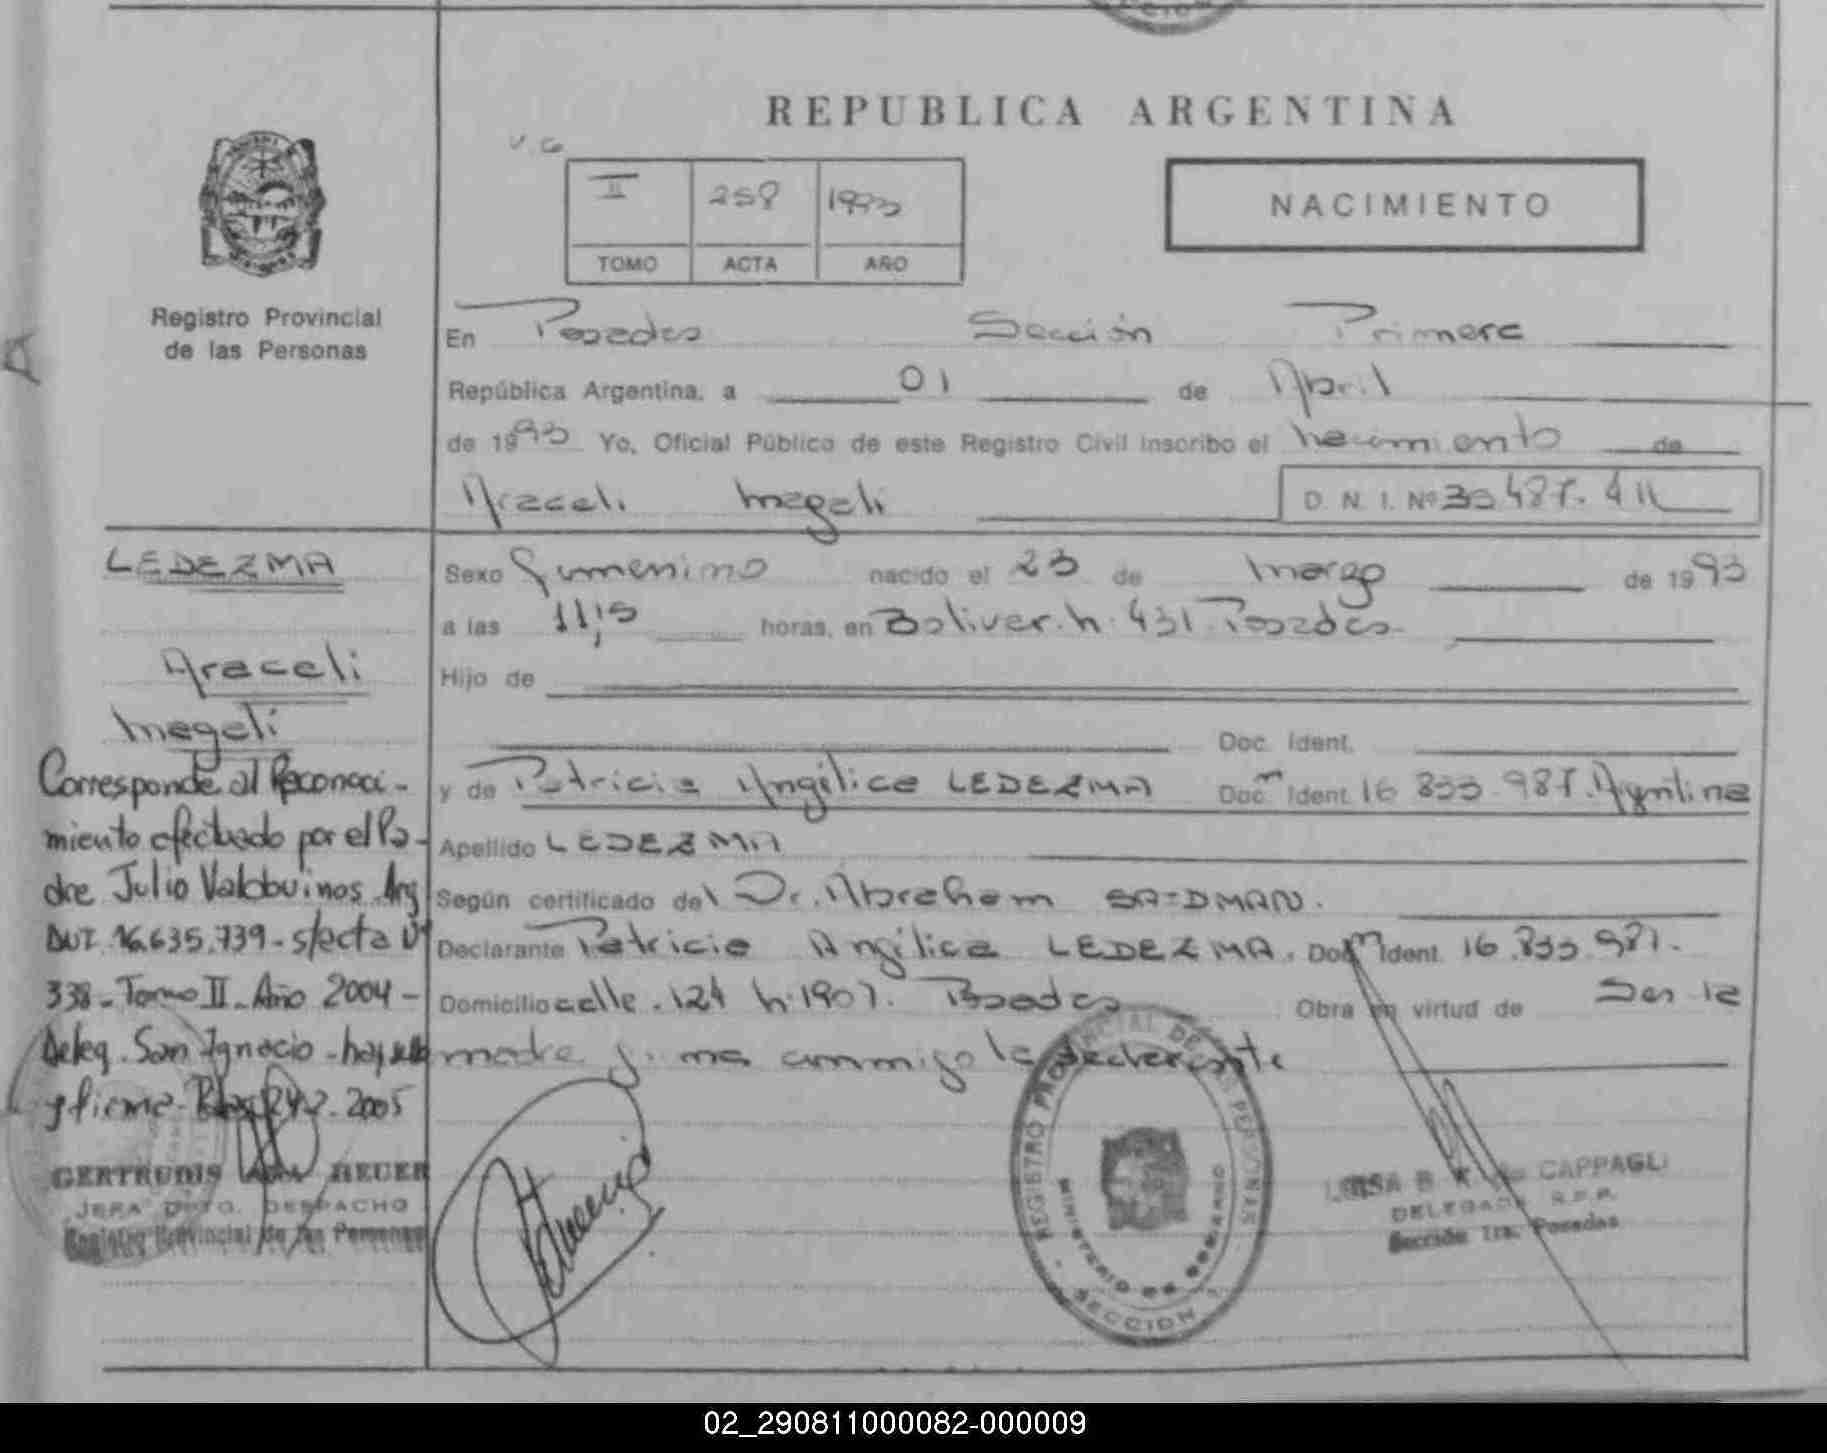 REPUBLICA ARGENTINA
V.G
II 258 1993
TOMO ACTA AÑO
NACIMIENTO
Registro Provincial
de las Personas
En Posadas Sección Primera
República Argentina, a 01 de Abril
de 1993 Yo, Oficial Público de este Registro Civil inscribo el nacimiento de
Araceli Magali D. N. I. Nº
LEDEZMA
Araceli
Magali
Sexo Femenino nacido el 23 de Marzo de 1993
a las 11,15 horas, en Bolivar. n. 431. Posadas
Hijo de
Doc. Ident.
y de Patricia Angélica LEDEZMA Doc. Ident. 16.833.987. Argentina
Apellido LEDEZMA
Según certificado del Dr. Abraham
Declarante Patricia Angélica LEDEZMA. Doc. Ident. 16.833.987.
Domicilio calle. 124 n. 1907. Posadas Obra en virtud de Ser la
madre y. la declarante
Corresponde al Reconoci-
miento efectuado por el Pa-
dre Julio Arg
DNI. 16.635.739 - s/acta Nº
338 - Tomo II - Año 2004 -
Deleg. San Ignacio - hay sello
y firma - 2005
GERTRUDIS REUER
JEFA DPTO. DESPACHO
Registro Provincial de las Personas
REGISTRO PROVINCIAL DE LAS PERSONAS
MINISTERIO DE GOBIERNO
SECCION
LUISA B. CAPPAGLI
DELEGADA R.P.P.
Sección 1ra. Posadas
02_290811000082-000009